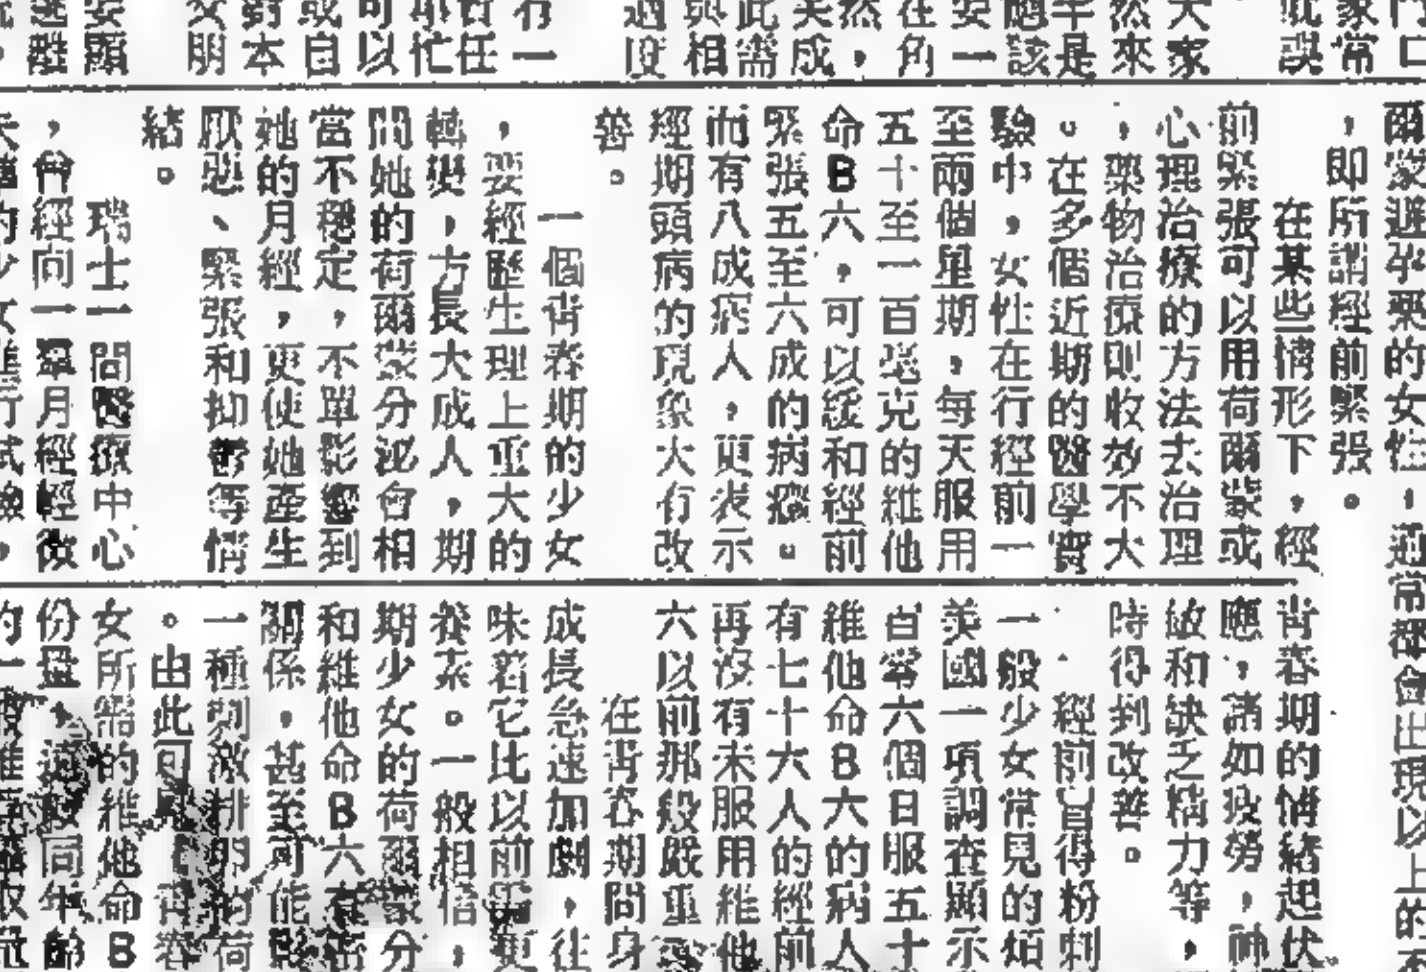 門口
家常
誤
大家
然來
半是
應該
安一
在角
然,
成
此需
與相
適度
一
責任
忙
可以
或自
對本
女明
爾蒙避孕藥的女性,通常都會出現以上的不
,即所謂經前緊張。
在某些情形下,經
前緊張可以用荷爾蒙或
心理治療的方法去治理
,藥物治療則收效不大
。在多個近期的醫學實
驗中,女性在行經前一
至兩個星期,每天服用
五十至一百毫克的維他
命B六,可以緩和經前
緊張五至六成的病癥。
而有八成病人,更表示
經期頭病的現象大有改
善。
一個青春期的少女
,要經歷生理上重大的
轉變,方長大成人,期
間她的荷爾蒙分泌會相
當不穩定,不單影響到
她的月經,更使她產生
厭惡、緊張和抑鬱等情
緒。
瑞士一間醫療中心
,曾經向一羣月經輕微
的少女進行試驗,
青春期的情緒起伏
應,諸如疲勞,神
敏和缺乏精力等,
時得到改善。
經前冒得粉刺
一般少女常見的煩
美國一項調查顯示
百零六個日服五十
維他命B六的病人
有七十六人的經前
再沒有未服用維他
六以前那般嚴重
在青春期間身
成長急速加劇,往
味着它比以前需更
養素。一般相信,
期少女的荷爾蒙分
和維他命B六有密
關係,甚至可能影
一種刺激排卵的荷
。由此可見,青春
女所需的維他命B
份量,遠較同年
的一般